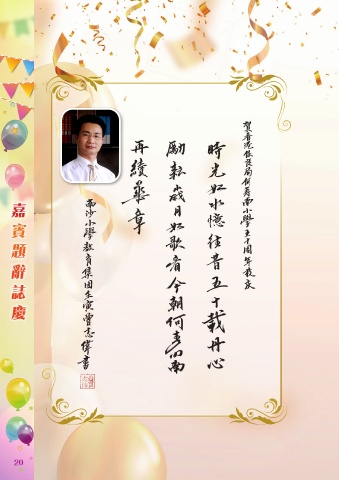 嘉賓題辭誌慶
賀香港保良局何壽南小學五十周年校慶
時光如水憶往昔五十載丹心
勵耘歲月如歌看今朝何壽南
再綾華章
南沙小學教育集團壬寅曾志偉書
20